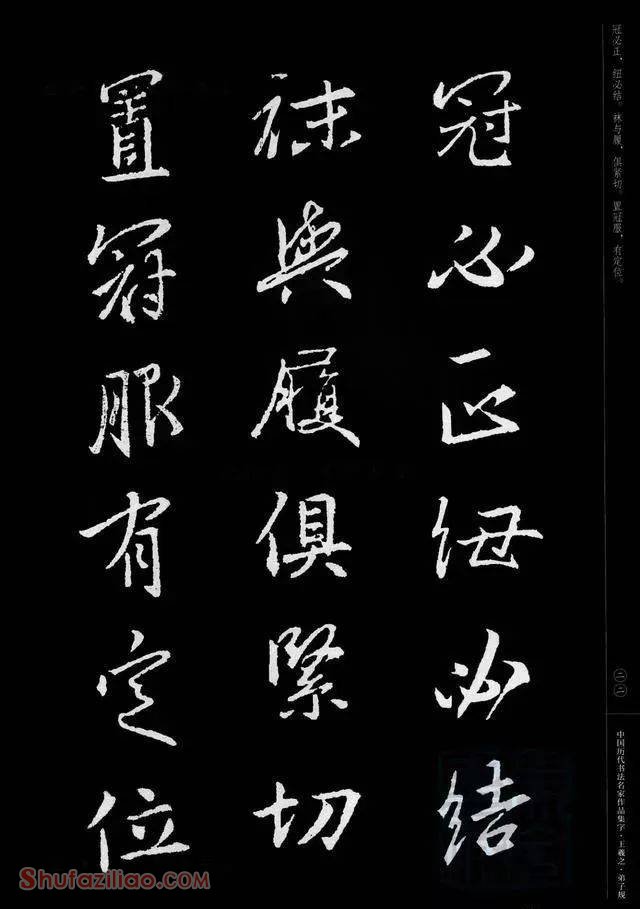 冠必正紐必結
袜與履俱緊切
置冠服有定位
冠必正，纽必结。袜与履，俱紧切。置冠服，有定位。
二二
中国历代书法名家作品集字·王羲之·弟子规
Shufaziliao.com